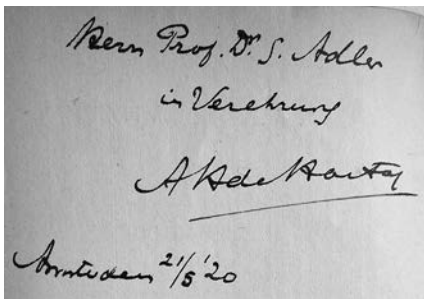 Herrn Prof. Dr. S. Adler
in Verehrung
AHdeHartog
Amsterdam 21/5 '20